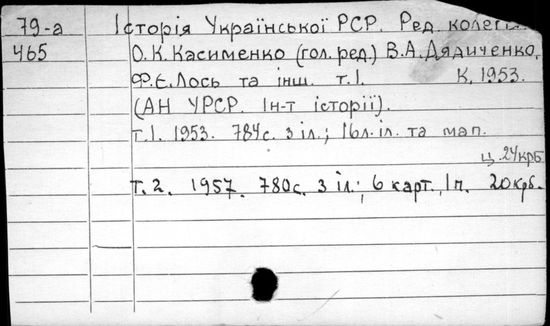 79-а Історія Української РСР. Ред. колегія
465 О.К.Касименко (гол.ред.) В.А.Дядиченко,
Ф.Є.Лось та інш. т.1. К.1953.
(АН УРСР. Ін-т історії).
т.1. 1953. 784с. з іл.; 16л.іл. та мап.
ц. 24крб
т.2. 1957. 780с. з іл.; 6 карт., 1п. 20крб.